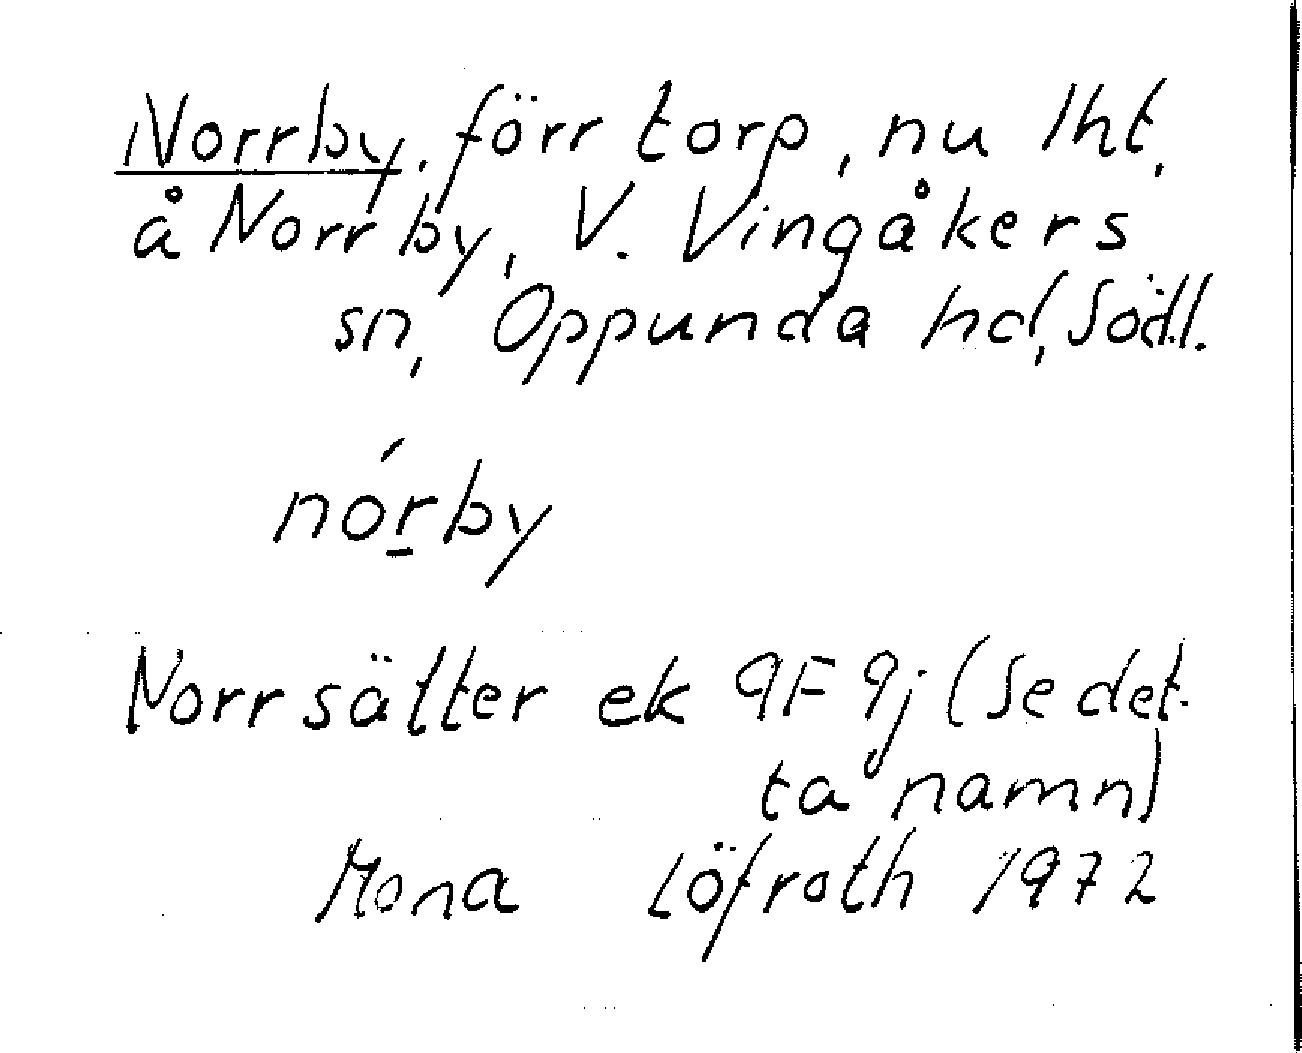 Norrby, förr torp, nu lht,
å Norrby, V. Vingåkers
sn, Oppunda hd, Södl.
nór̲by
Norrsätter ek 9F 9j (Se det-
ta namn)
Mona Löfroth 1972